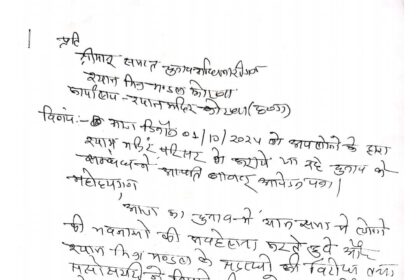 प्रति
श्रीमान समस्त चुनाव अधिकारीगण
श्याम मित्र मण्डल कोरबा
कार्यालय - श्याम मंदिर कोरबा (छ.ग.)
विषय:- आज दिनाँक 01/10/2024 को आप लोगों के द्वारा
श्याम मंदिर परिसर में कराये जा रहे चुनाव के
सम्बंध में आपत्ति बाबत् आवेदन पत्र।
महोदयगण
आज का चुनाव में आम सभा में लोगों
की भावनाओं की अवहेलना करते हुये और
श्याम मित्र मण्डल के सदस्यों की